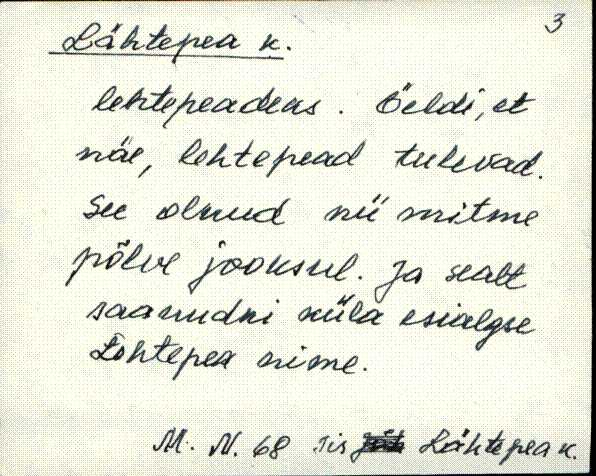 3
Lähtepea k.
lehtepeadeks. Öeldi, et
näe, lehtepead tulevad.
See olnud nii mitme
põlve jooksul. Ja sealt
saanudki küla esialgse
Lohtepea nime.
M. N. 68 sis Lähtepea k.